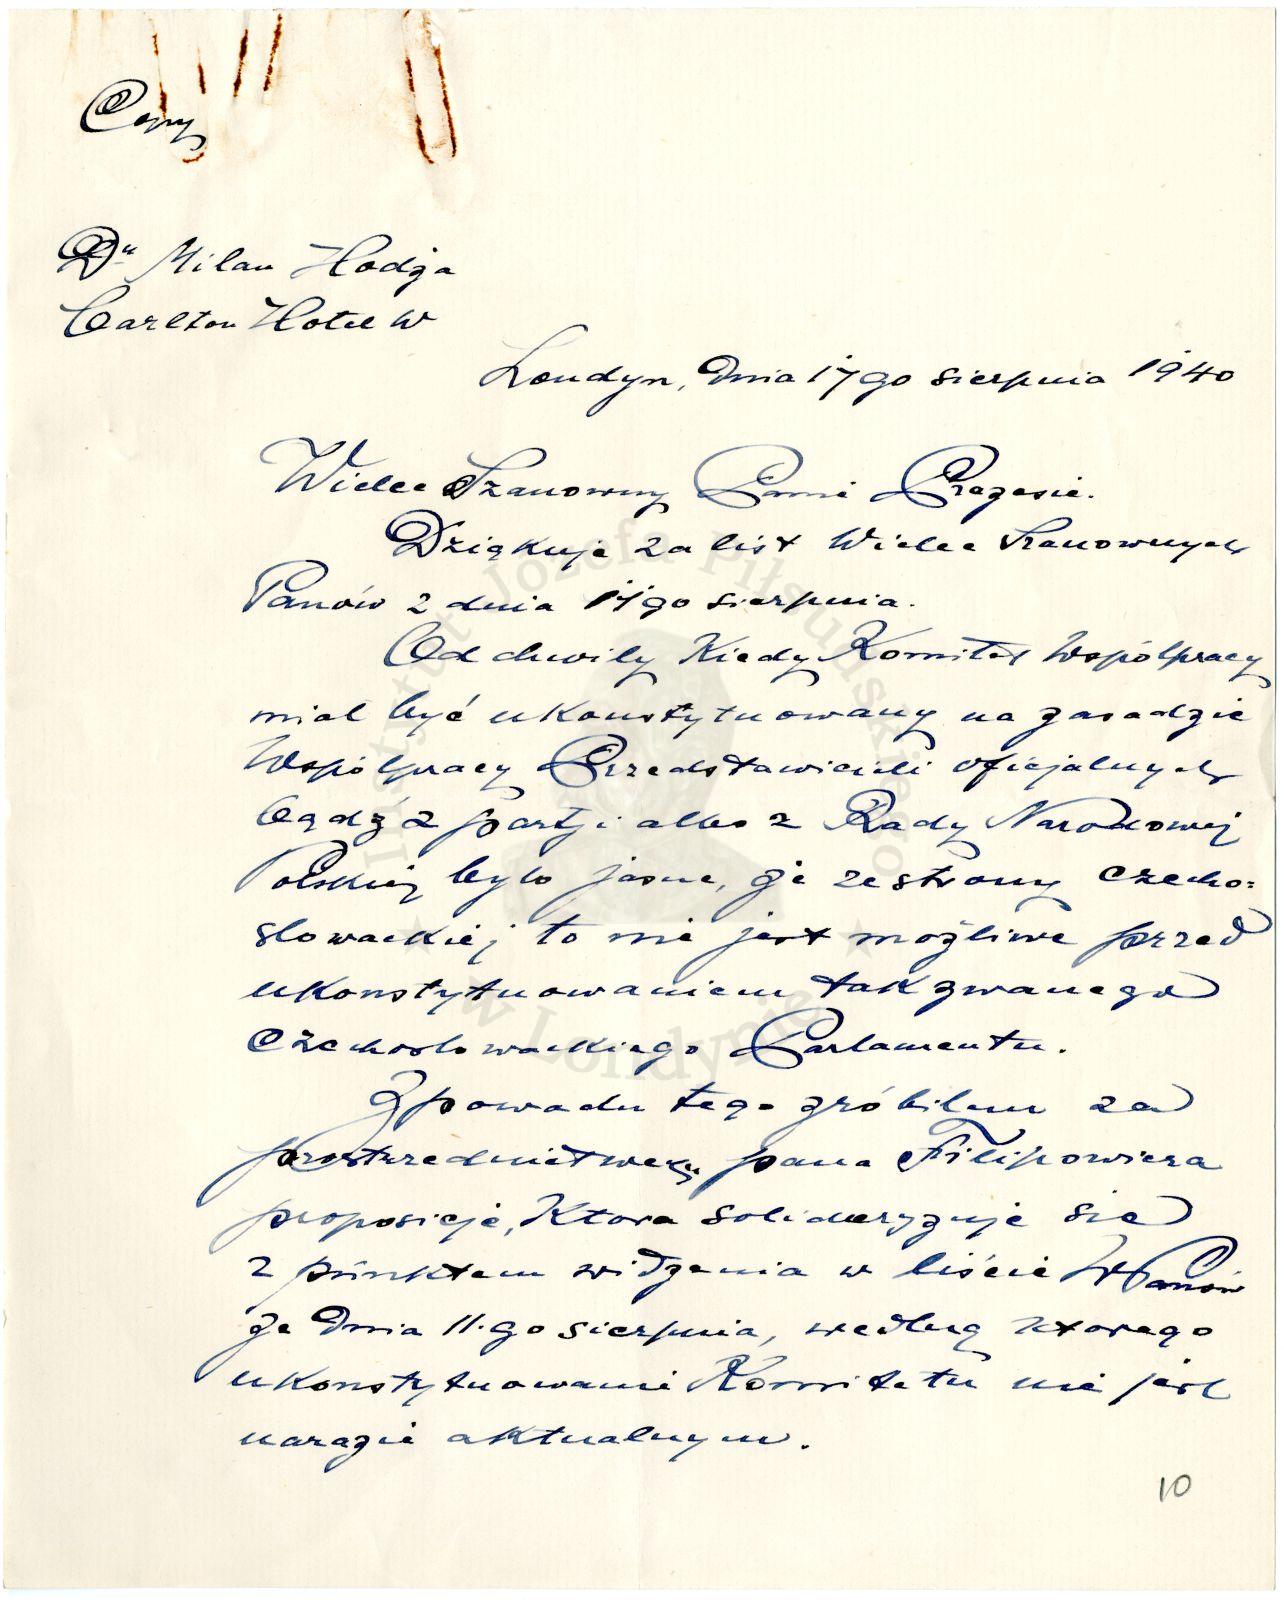 Copy
Dr Milan Hodža
Carlton Hotel W
Londyn, dnia 17go sierpnia 1940
Wielce Szanowny Panie Prezesie.
Dziękuję za list Wielce Szanownych
Panów z dnia 11go sierpnia.
Od chwily kiedy Komitet Współpracy
miał być ukonstytuowany na zasadzie
Współpracy Przedstawicieli oficjalnych
bądź z partji albo z Rady Narodowej
Polskiej było jasne, że ze strony czecho=
słowackiej to nie jest możliwe przed
ukonstytuowaniem tak zwanego
Czechosłowackiego Parlamentu.
Z powodu tego zróbilem za
pana Filipowicza
proposicje, ktora solidaryzuje sie
z punktem widzenia w liście WPanów
ze dnia 11.go sierpnia, według ktorego
ukonstytuowanie Komitetu nie jest
narazie aktualnym.
10
Instytut Józefa Piłsudskiego
w Londynie